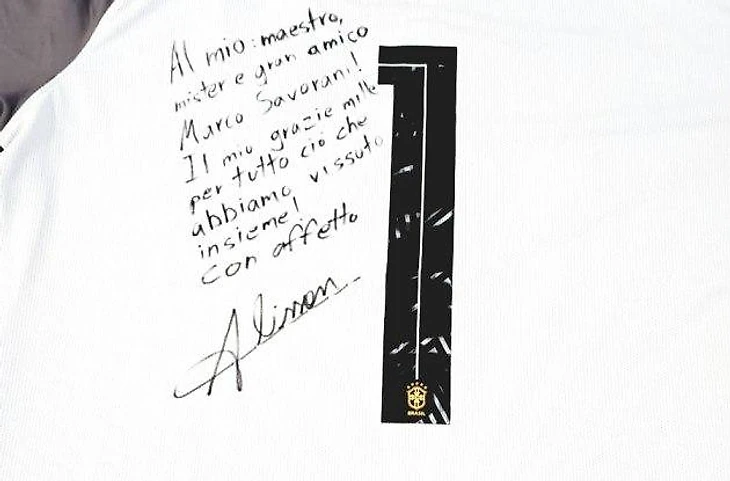 Al mio: maestro,
mister e gran amico
Marco Savorani!
Il mio grazie mille
per tutto ciò che
abbiamo vissuto
insieme!
con affetto
Alisson
1
BRASIL